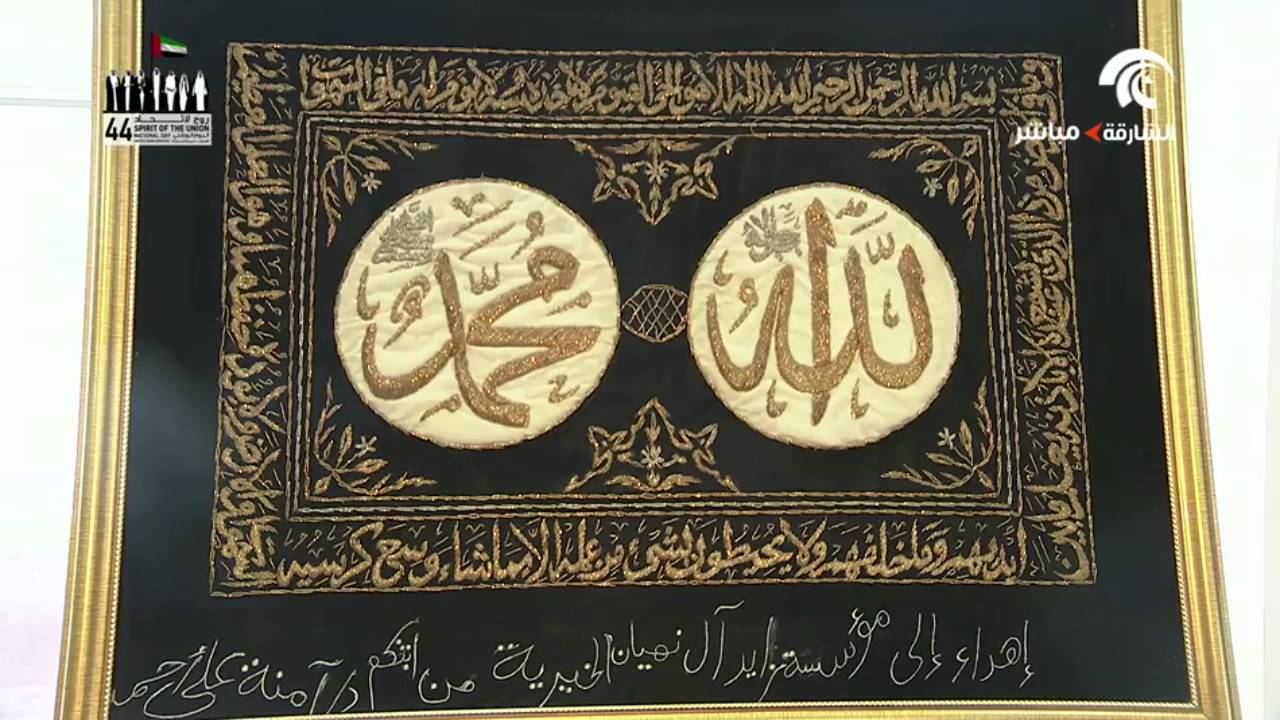 روح الاتحاد
44
SPIRIT OF THE UNION
NATIONAL DAY
الشارقة مباشر
بسم الله الرحمن الرحيم الله لا إله إلا هو الحي القيوم لا تأخذه سنة ولا نوم له ما في السموات
الله
محمد
أيديهم وما خلفهم ولا يحيطون بشئ من علمه إلا بما شاء وسع كرسيه
إهداء إلى مؤسسة زايد آل نهيان الخيرية من ابنتكم د. آمنة علي أحمد